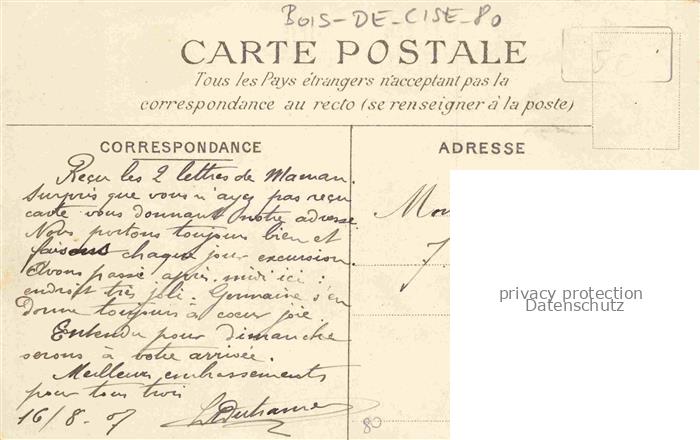 BOIS-DE-CISE-80
CARTE POSTALE
Tous les Pays étrangers n'acceptant pas la
correspondance au recto (se renseigner à la poste)
CORRESPONDANCE
ADRESSE
Reçu les 2 lettres de Maman.
Surpris que vous n'ayez pas reçu
carte vous donnant notre adresse.
Nous portons toujours bien et
faisons chaque jour excursion.
Avons passé après-midi ici :
endroit très joli. Germaine s'en
donne toujours à cœur joie.
Entendu pour dimanche
serons à votre arrivée.
Meilleurs embrassements
pour tous trois
16/8.07
80
privacy protection
Datenschutz